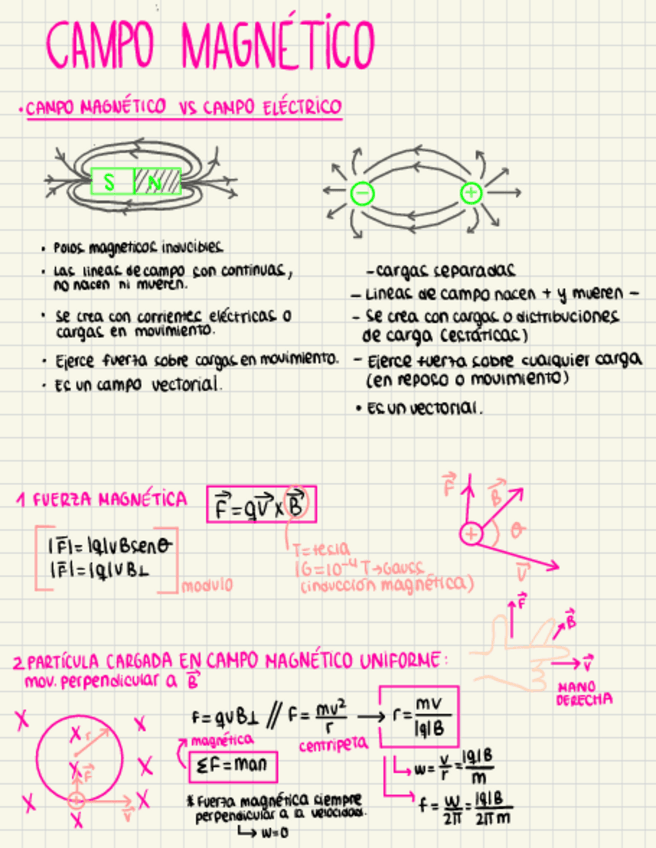 CAMPO MAGNÉTICO
• CAMPO MAGNÉTICO VS CAMPO ELÉCTRICO
S N
− +
• Polos magneticos inducibles
• Las lineas de campo son continuas,
no nacen ni mueren.
• Se crea con corrientes eléctricas o
cargas en movimiento.
• Ejerce fuerza sobre cargas en movimiento.
• Es un campo vectorial.
- cargas separadas
- Lineas de campo nacen + y mueren -
- Se crea con cargas o distribuciones
de carga (estáticas)
- Ejerce fuerza sobre cualquier carga
(en reposo o movimiento)
• Es un vectorial.
1 FUERZA MAGNÉTICA
F⃗ = qV⃗ x B⃗
|F̄| = |q|vBsenθ
|F̄| = |q|vB⊥
modulo
T = tesla
1G = 10⁻⁴ T → Gauss
(inducción magnética)
F⃗ B⃗ θ
+
V⃗
F⃗
B⃗
V⃗
MANO
DERECHA
2 PARTÍCULA CARGADA EN CAMPO MAGNÉTICO UNIFORME:
mov. perpendicular a B⃗
X X X r
X F⃗ X
X + V⃗ X
X
f = qvB⊥ // F = mv²/r → r = mv/|q|B
magnética
centripeta
ΣF = man
w = v/r = |q|B/m
f = w/2π = |q|B/2πm
* Fuerza magnética siempre
perpendicular a la velocidad.
↳ w=0